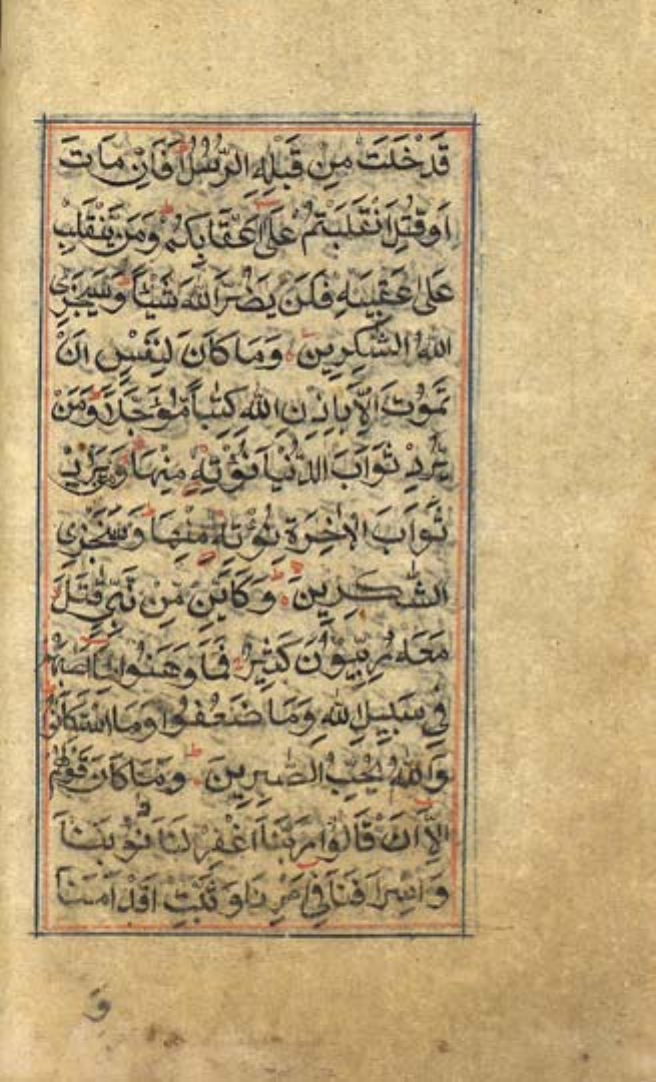 قَدْ خَلَتْ مِنْ قَبْلِهِ الرُّسُلُ اَفَاِنْ مَاتَ
اَوْ قُتِلَ انْقَلَبْتُمْ عَلٰى اَعْقَابِكُمْ وَمَنْ يَنْقَلِبْ
عَلٰى عَقِبَيْهِ فَلَنْ يَضُرَّ اللّٰهَ شَيْاً وَسَيَجْزِى
اللّٰهُ الشّٰكِرِينَ وَمَا كَانَ لِنَفْسٍ اَنْ
تَمُوْتَ اِلَّا بِاِذْنِ اللّٰهِ كِتٰباً مُؤَجَّلاً وَمَنْ
يُّرِدْ ثَوَابَ الدُّنْيَا نُؤْتِهٖ مِنْهَا وَمَنْ يُّرِدْ
ثَوَابَ الْاٰخِرَةِ نُؤْتِهٖ مِنْهَا وَسَنَجْزِى
الشّٰكِرِينَ وَكَاَيِّنْ مِّنْ نَّبِيٍّ قٰتَلَ
مَعَهٗ رِبِّيُّوْنَ كَثِيْرٌ فَمَا وَهَنُوْا لِمَا اَصَابَهُمْ
فِى سَبِيْلِ اللّٰهِ وَمَا ضَعُفُوْا وَمَا اسْتَكَانُوْا
وَاللّٰهُ يُحِبُّ الصّٰبِرِينَ وَمَا كَانَ قَوْلَهُمْ
اِلَّا اَنْ قَالُوْا رَبَّنَا اغْفِرْ لَنَا ذُنُوْبَنَا
وَاِسْرَافَنَا فِى اَمْرِنَا وَثَبِّتْ اَقْدَامَنَا
وَ